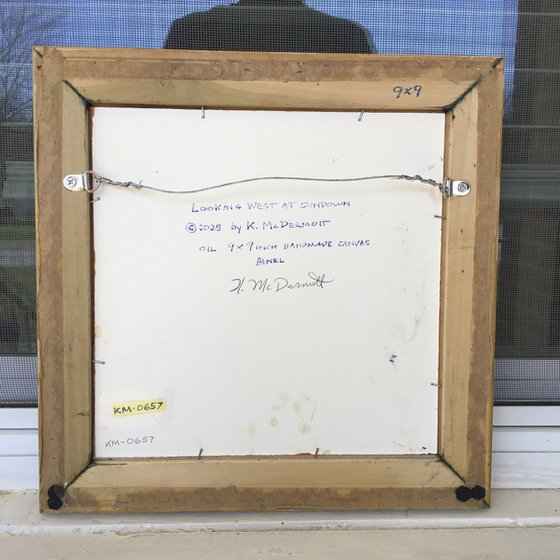 9x9
LOOKING WEST AT SUNDOWN
© 2025 by K. McDERMOTT
OIL 9 X 9 INCH HANDMADE CANVAS
PANEL
K. McDermott
KM-0657
KM-0657